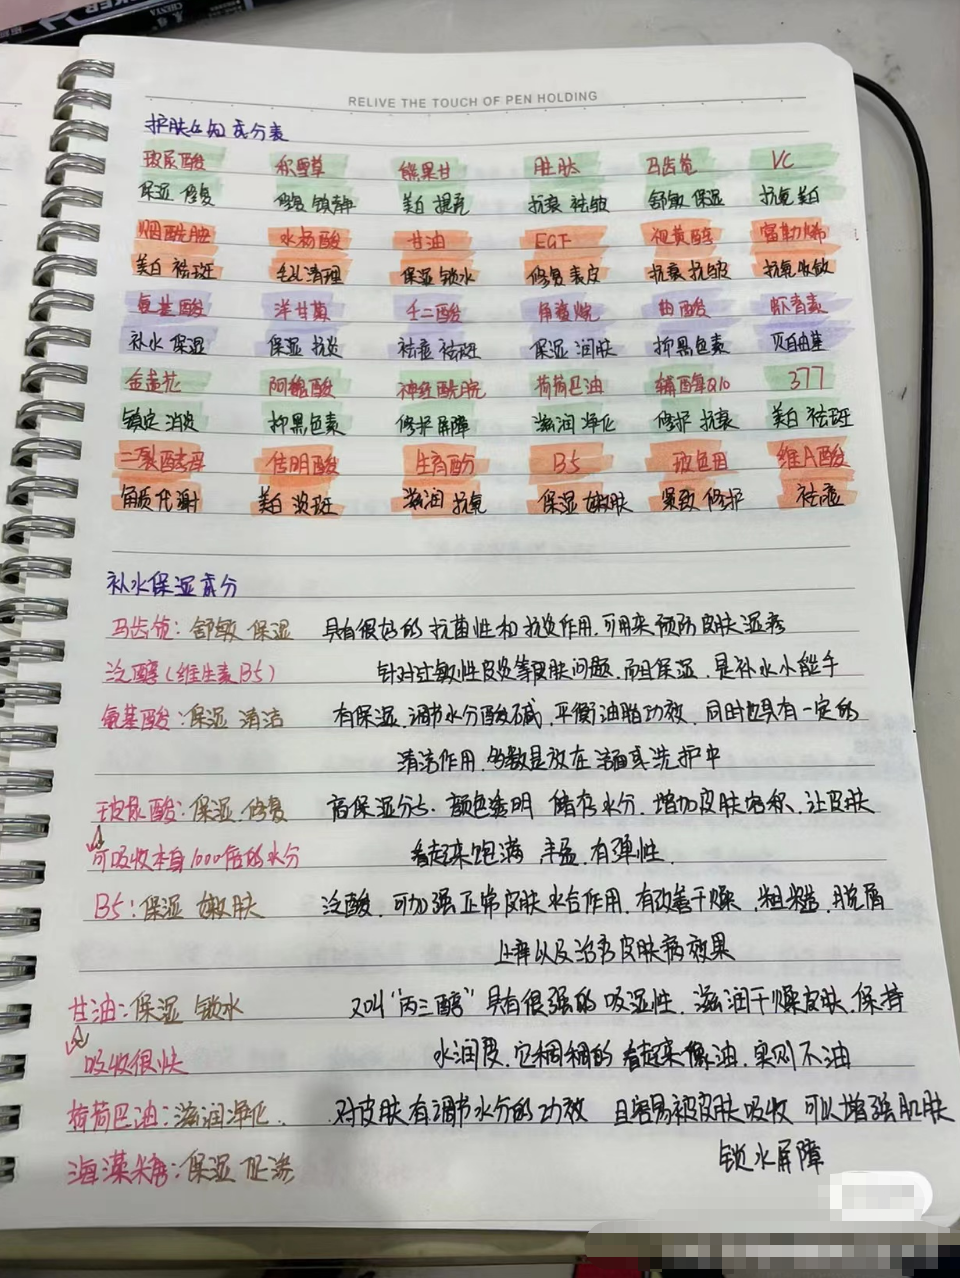 RELIVE THE TOUCH OF PEN HOLDING
护肤必知成分表
玻尿酸 积雪草 熊果甘 胜肽 马齿苋 VC
保湿 修复 修复 镇静 美白 提亮 抗衰 祛皱 舒敏 保湿 抗氧 美白
烟酰胺 水杨酸 甘油 EGF 视黄醇 富勒烯
美白 祛斑 毛孔清理 保湿 锁水 修复表皮 抗衰 抗皱 抗氧 收敛
氨基酸 洋甘菊 壬二酸 角鲨烷 曲酸 虾青素
补水 保湿 保湿 抗炎 祛痘 祛斑 保湿 润肤 抑黑色素 灭自由基
金盏花 阿魏酸 神经酰胺 荷荷巴油 辅酶Q10 377
镇定 消炎 抑黑色素 修护屏障 滋润 净化 修护 抗衰 美白 祛斑
二裂酵母 传明酸 生育酚 B5 玻色因 维A酸
角质代谢 美白 淡斑 滋润 抗氧 保湿 嫩肤 紧致 修护 祛痘
补水保湿成分
马齿苋: 舒敏 保湿 具有很好的抗菌性和抗炎作用,可用来预防皮肤湿疹
泛醇(维生素B5) 针对过敏性皮炎等皮肤问题,而且保湿,是补水小能手
氨基酸:保湿 清洁 有保湿,调节水分酸碱,平衡油脂功效,同时也具有一定的
清洁作用,多数是放在洁面或洗护中
玻尿酸:保湿.修复 高保湿分子.颜色透明 储存水分,增加皮肤容积,让皮肤
可吸收本身1000倍的水分 看起来饱满 丰盈,有弹性.
B5:保湿 嫩肤 泛酸,可加强正常皮肤水合作用,有改善干燥,粗糙,脱屑
止痒以及治有皮肤病效果
甘油:保湿 锁水 又叫"丙三醇"具有很强的吸湿性,滋润干燥皮肤,保持
吸收很快 水润度,它稠稠的看起来像油,实则不油
荷荷巴油:滋润净化. 对皮肤有调节水分的功效 且容易被皮肤吸收 可以增强肌肤
锁水屏障
海藻糖:保湿